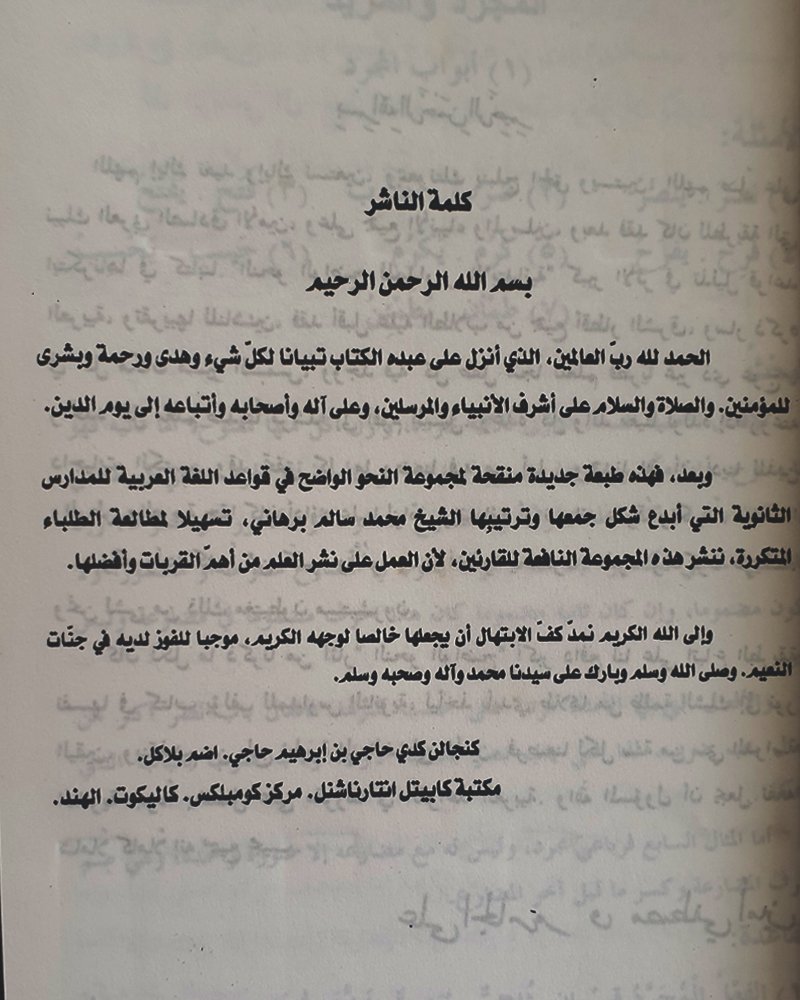 كلمة الناشر
بسم الله الرحمن الرحيم
الحمد لله ربّ العالمين، الذي أنزل على عبده الكتاب تبيانا لكلّ شيء وهدى ورحمة وبشرى
للمؤمنين. والصلاة والسلام على أشرف الأنبياء والمرسلين، وعلى آله وأصحابه وأتباعه إلى يوم الدين.
وبعد، فهذه طبعة جديدة منقحة لمجموعة النحو الواضح في قواعد اللغة العربية للمدارس
الثانوية التي أبدع شكل جمعها وترتيبِها الشيخ محمد سالم برهاني، تسهيلا لمطالعة الطلباء
المتكررة، ننشر هذه المجموعة النافعة للقارئين، لأن العمل على نشر العلم من أهمّ القربات وأفضلها.
وإلى الله الكريم نمدّ كفّ الابتهال أن يجعلها خالصا لوجهه الكريم، موجبا للفوز لديه في جنّات
النعيم. وصلى الله وسلم وبارك على سيدنا محمد وآله وصحبه وسلم.
كنجالن كدي حاجي بن إبرهيم حاجي. اضم بلاكل.
مكتبة كابيتل انتارناشنل. مركز كومبلكس. كاليكوت. الهند.